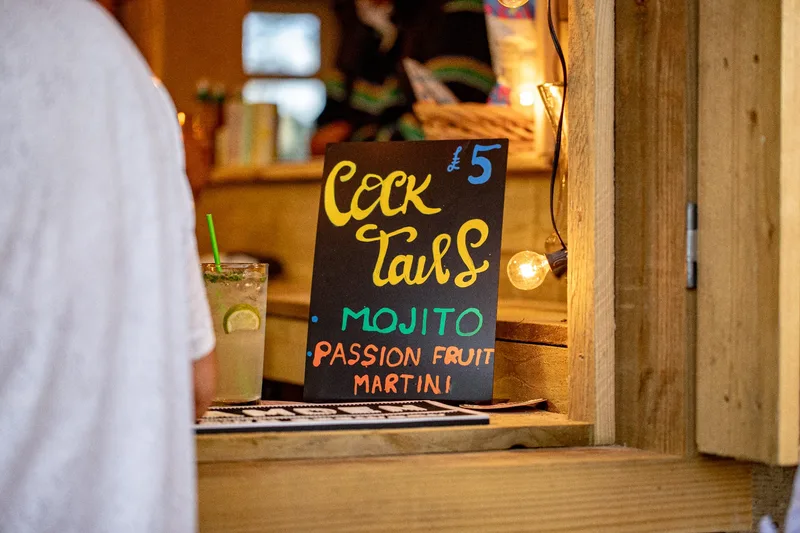 £5
Cock
Tails
MOJITO
PASSION FRUIT
MARTINI